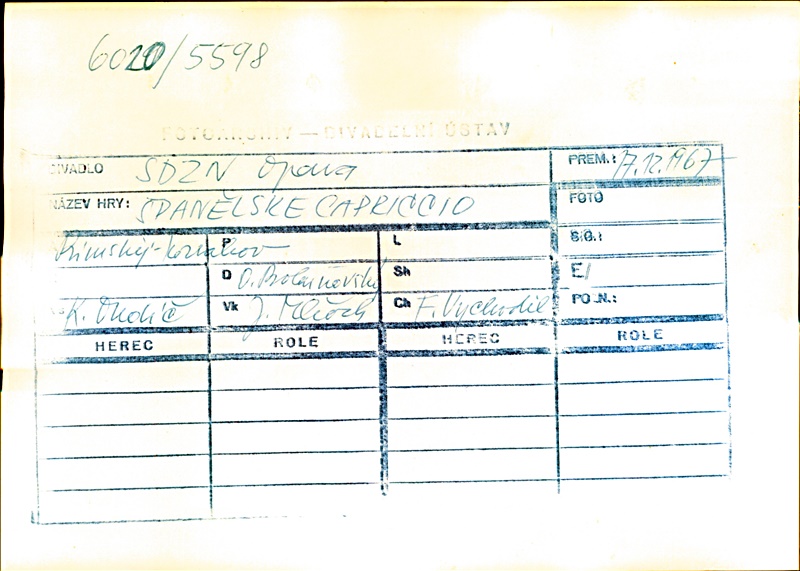 6020/5598
FOTOARCHIV — DIVADELNÍ ÚSTAV
DIVADLO SDZN Opava PREM.: 17.12.1967
NÁZEV HRY: ŠPANĚLSKÉ CAPRICCIO FOTO
Rimskij-Korsakov P L SIG.:
D Sh E/
K. Vk J. Mloch Ch F. Vychodil PO N.:
HEREC ROLE HEREC ROLE